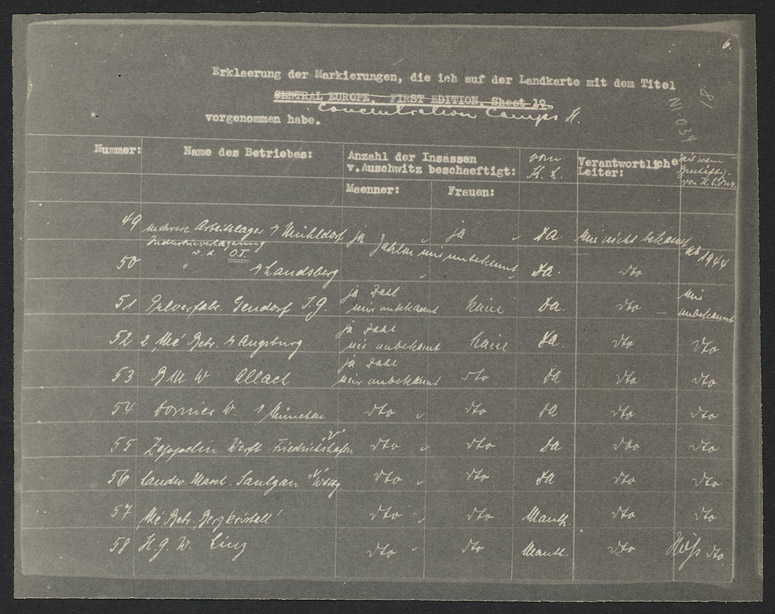 6.
Erklaerung der Markierungen, die ich auf der Landkarte mit dem Titel
CENTRAL EUROPE. FIRST EDITION. Sheet 10
Concentration Camps
vorgenommen habe.
NI 034
Nummer: Name des Betriebes: Anzahl der Insassen v.Auschwitz beschaeftigt: von K. L. Verantwortliche Leiter:
Maenner: Frauen:
49 mehrere Arbeitslager Mühldorf ja ja Da. mir nicht bekannt ab 1944
Industrieverlagerung Zahlen mir unbekannt
50 v. d. O.T. Landsberg Da. dto
51 Pulverfabr. Gendorf I.G. ja Zahl mir unbekannt keine Da. dto mir unbekannt
52 2 Me Betr. Augsburg ja Zahl mir unbekannt keine Da. dto dto
53 BMW Allach ja Zahl mir unbekannt dto Da dto dto
54 Dornier W. München dto " dto Da dto dto
55 Zeppelin Werft Friedrichshafen dto " dto Da dto dto
56 Landw. Masch. Saulgau dto " dto Da dto dto
57 Me Betr. Bergkristall dto " dto Mauth. dto dto
58 H. G. W. Linz dto " dto Mauth. dto dto
Höß